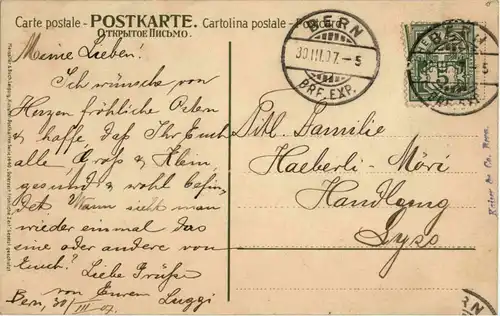 Carte postale - POSTKARTE. Cartolina postale - Postcard
ОТКРЫТОЕ ПИСЬМО.
BERN
30.III.07.-5
BRF. EXP.
5
Meine Lieben!
Ich wünsche von
Herzen fröhliche Ostern
& hoffe, daß Ihr Euch
alle, Groß & Klein,
gesund & wohl befin-
det. Wann sieht man
wieder einmal das
eine oder andere von
Euch? Liebe Grüße
von Eurem Luggi
Bern, 30/III 07.
Titl. Familie
Haeberli-Möri
Handlung
Lyss
Kaiser & Co. Bern.
RN